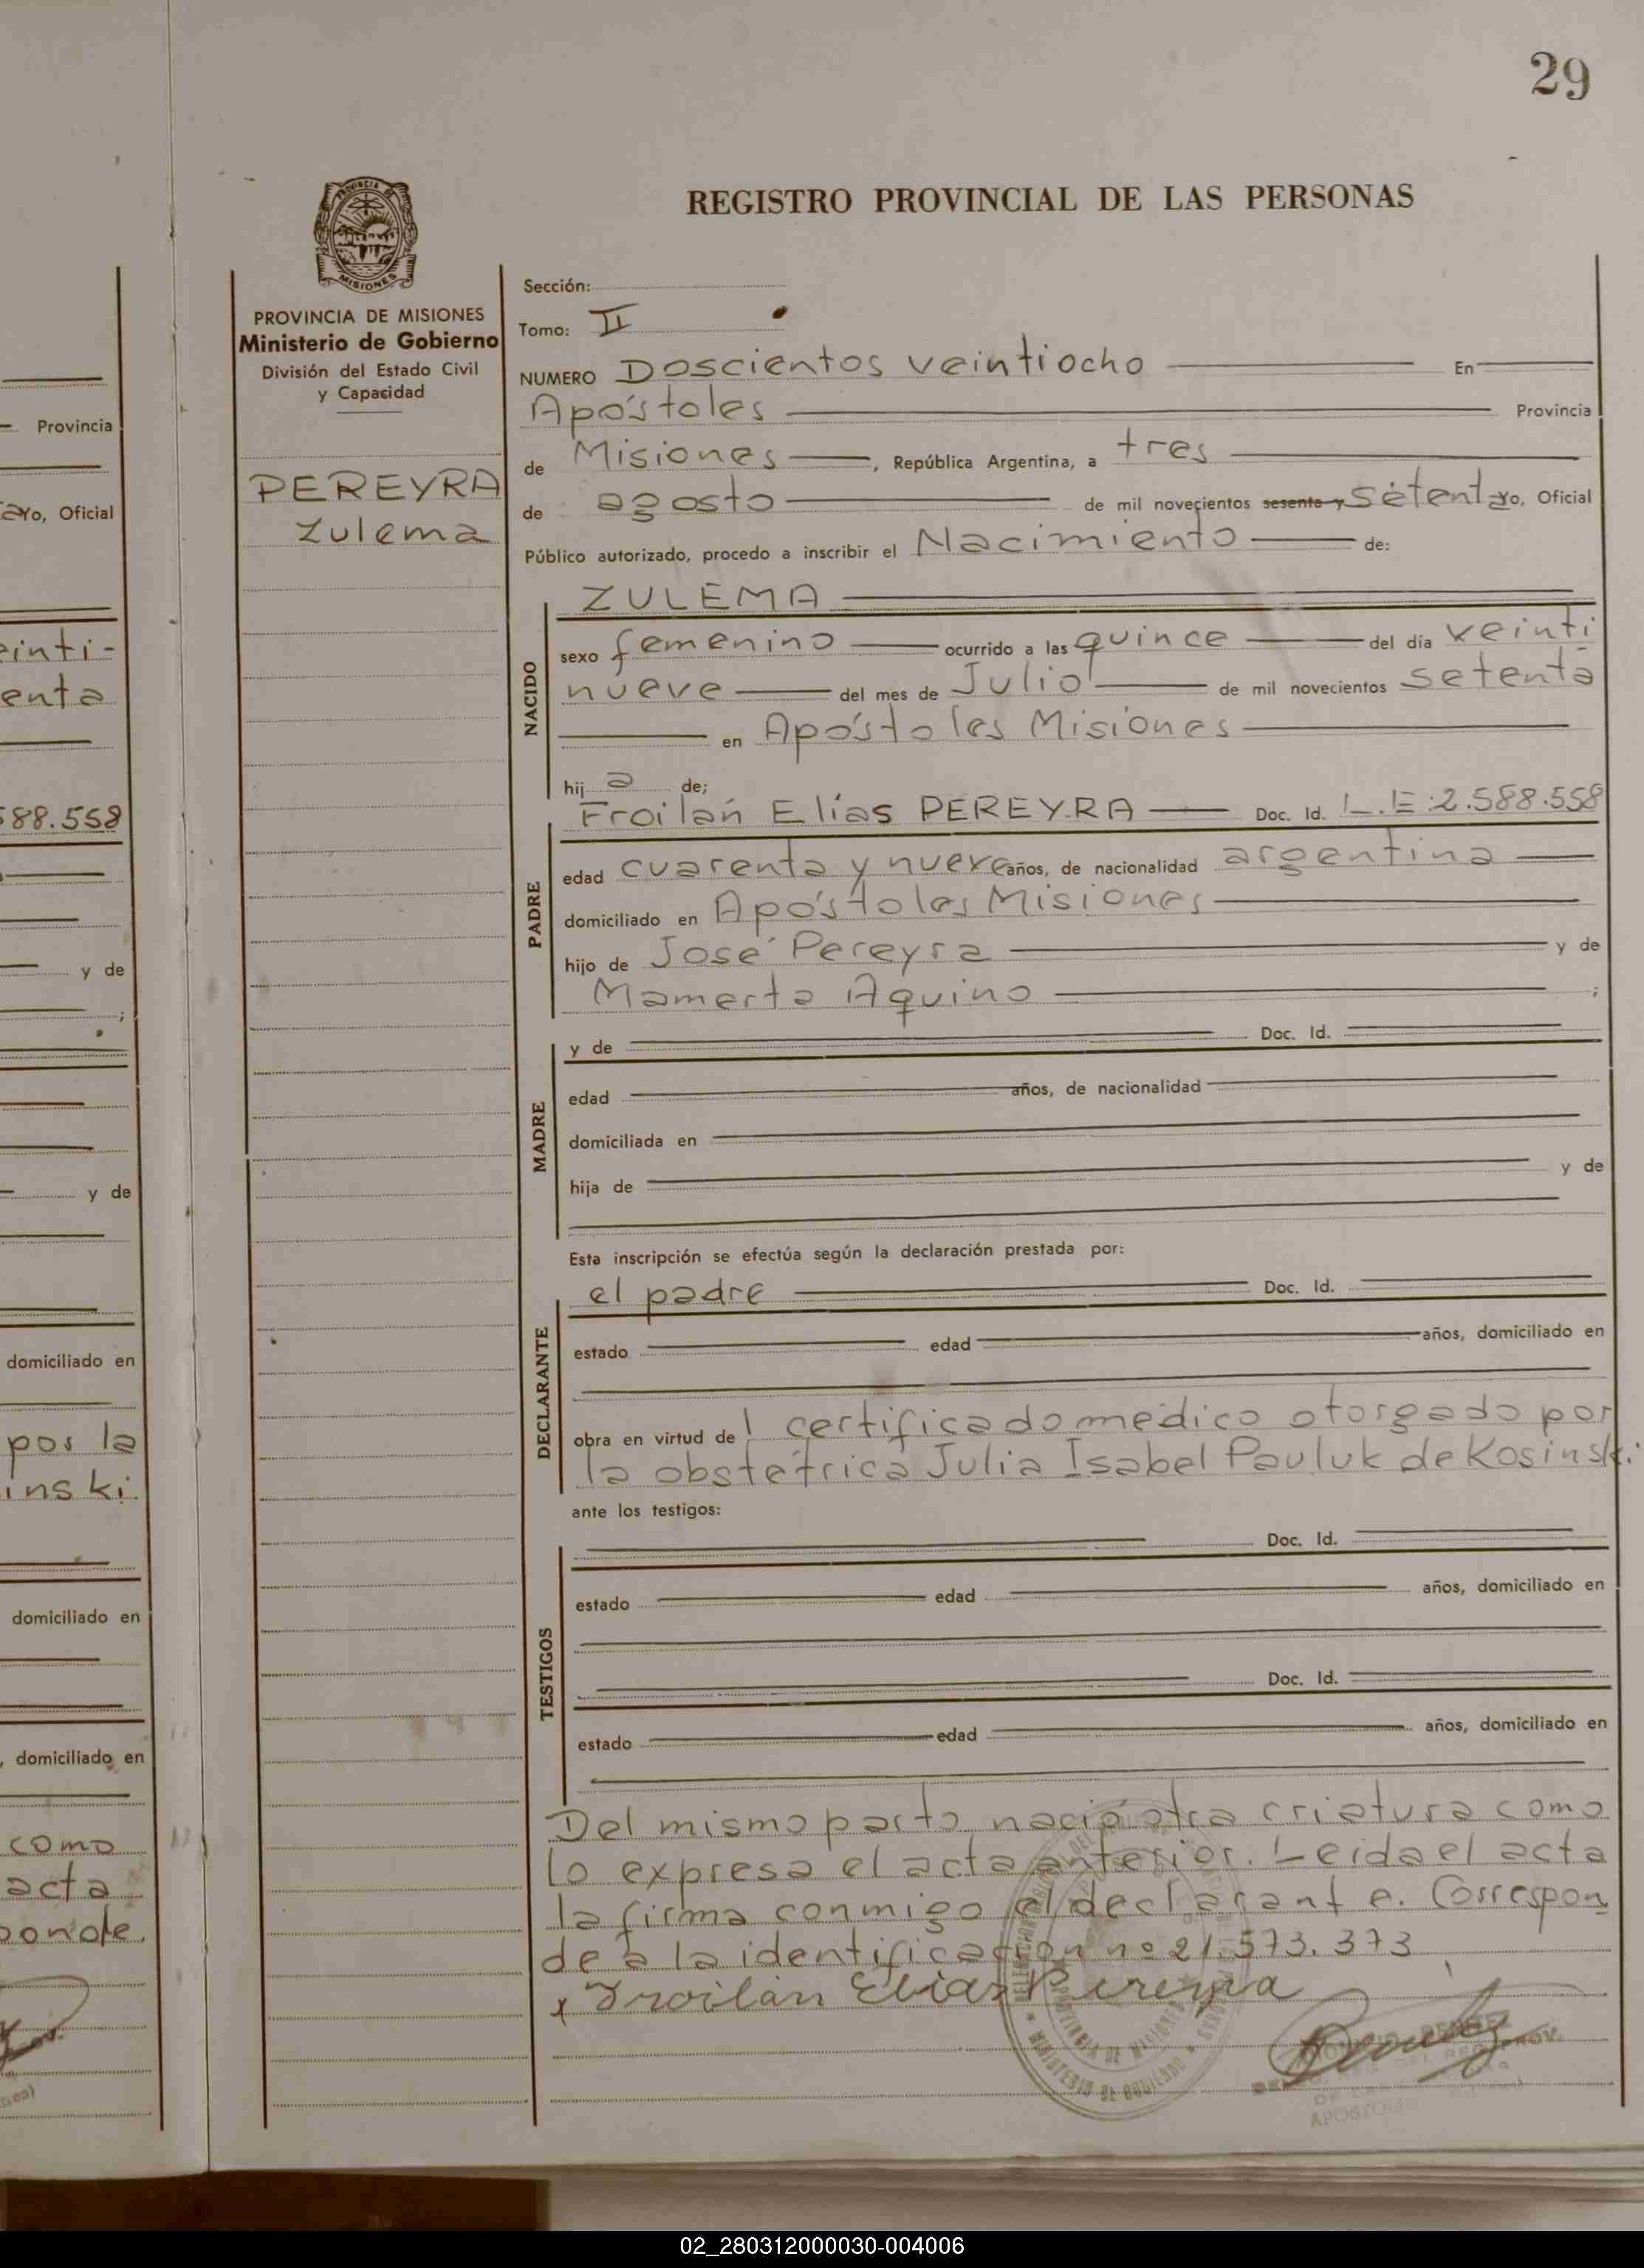 29
REGISTRO PROVINCIAL DE LAS PERSONAS
PROVINCIA DE MISIONES
Ministerio de Gobierno
División del Estado Civil
y Capacidad
PEREYRA
Zulema
Sección:
Tomo: II
NUMERO Doscientos veintiocho En
Apóstoles Provincia
de Misiones, República Argentina, a tres
de agosto de mil novecientos sesenta y setenta yo, Oficial
Público autorizado, procedo a inscribir el Nacimiento de:
NACIDO
ZULEMA
sexo femenino ocurrido a las quince del día veinti
nueve del mes de Julio de mil novecientos setenta
en Apóstoles Misiones
hij a de;
PADRE
Froilán Elías PEREYRA Doc. Id. L.E:2.588.558
edad cuarenta y nueve años, de nacionalidad argentina
domiciliado en Apóstoles Misiones
hijo de José Pereyra y de
Mamerta Aquino ;
MADRE
y de Doc. Id.
edad años, de nacionalidad
domiciliada en
hija de y de
Esta inscripción se efectúa según la declaración prestada por:
DECLARANTE
el padre Doc. Id.
estado edad años, domiciliado en
obra en virtud de l certificado médico otorgado por
la obstetrica Julia Isabel Pauluk de Kosinski.
ante los testigos:
TESTIGOS
Doc. Id.
estado edad años, domiciliado en
Doc. Id.
estado edad años, domiciliado en
Del mismo parto nació otra criatura como
lo expresa el acta anterior. Leida el acta
la firma conmigo el declarante. Correspon
de a la identificación nº 21.573.373
x Froilán Elias Pereyra
Provincia
yo, Oficial
einti-
enta
588.558
y de
;
y de
domiciliado en
por la
inski.
domiciliado en
, domiciliado en
como
acta
ponde.
02_280312000030-004006